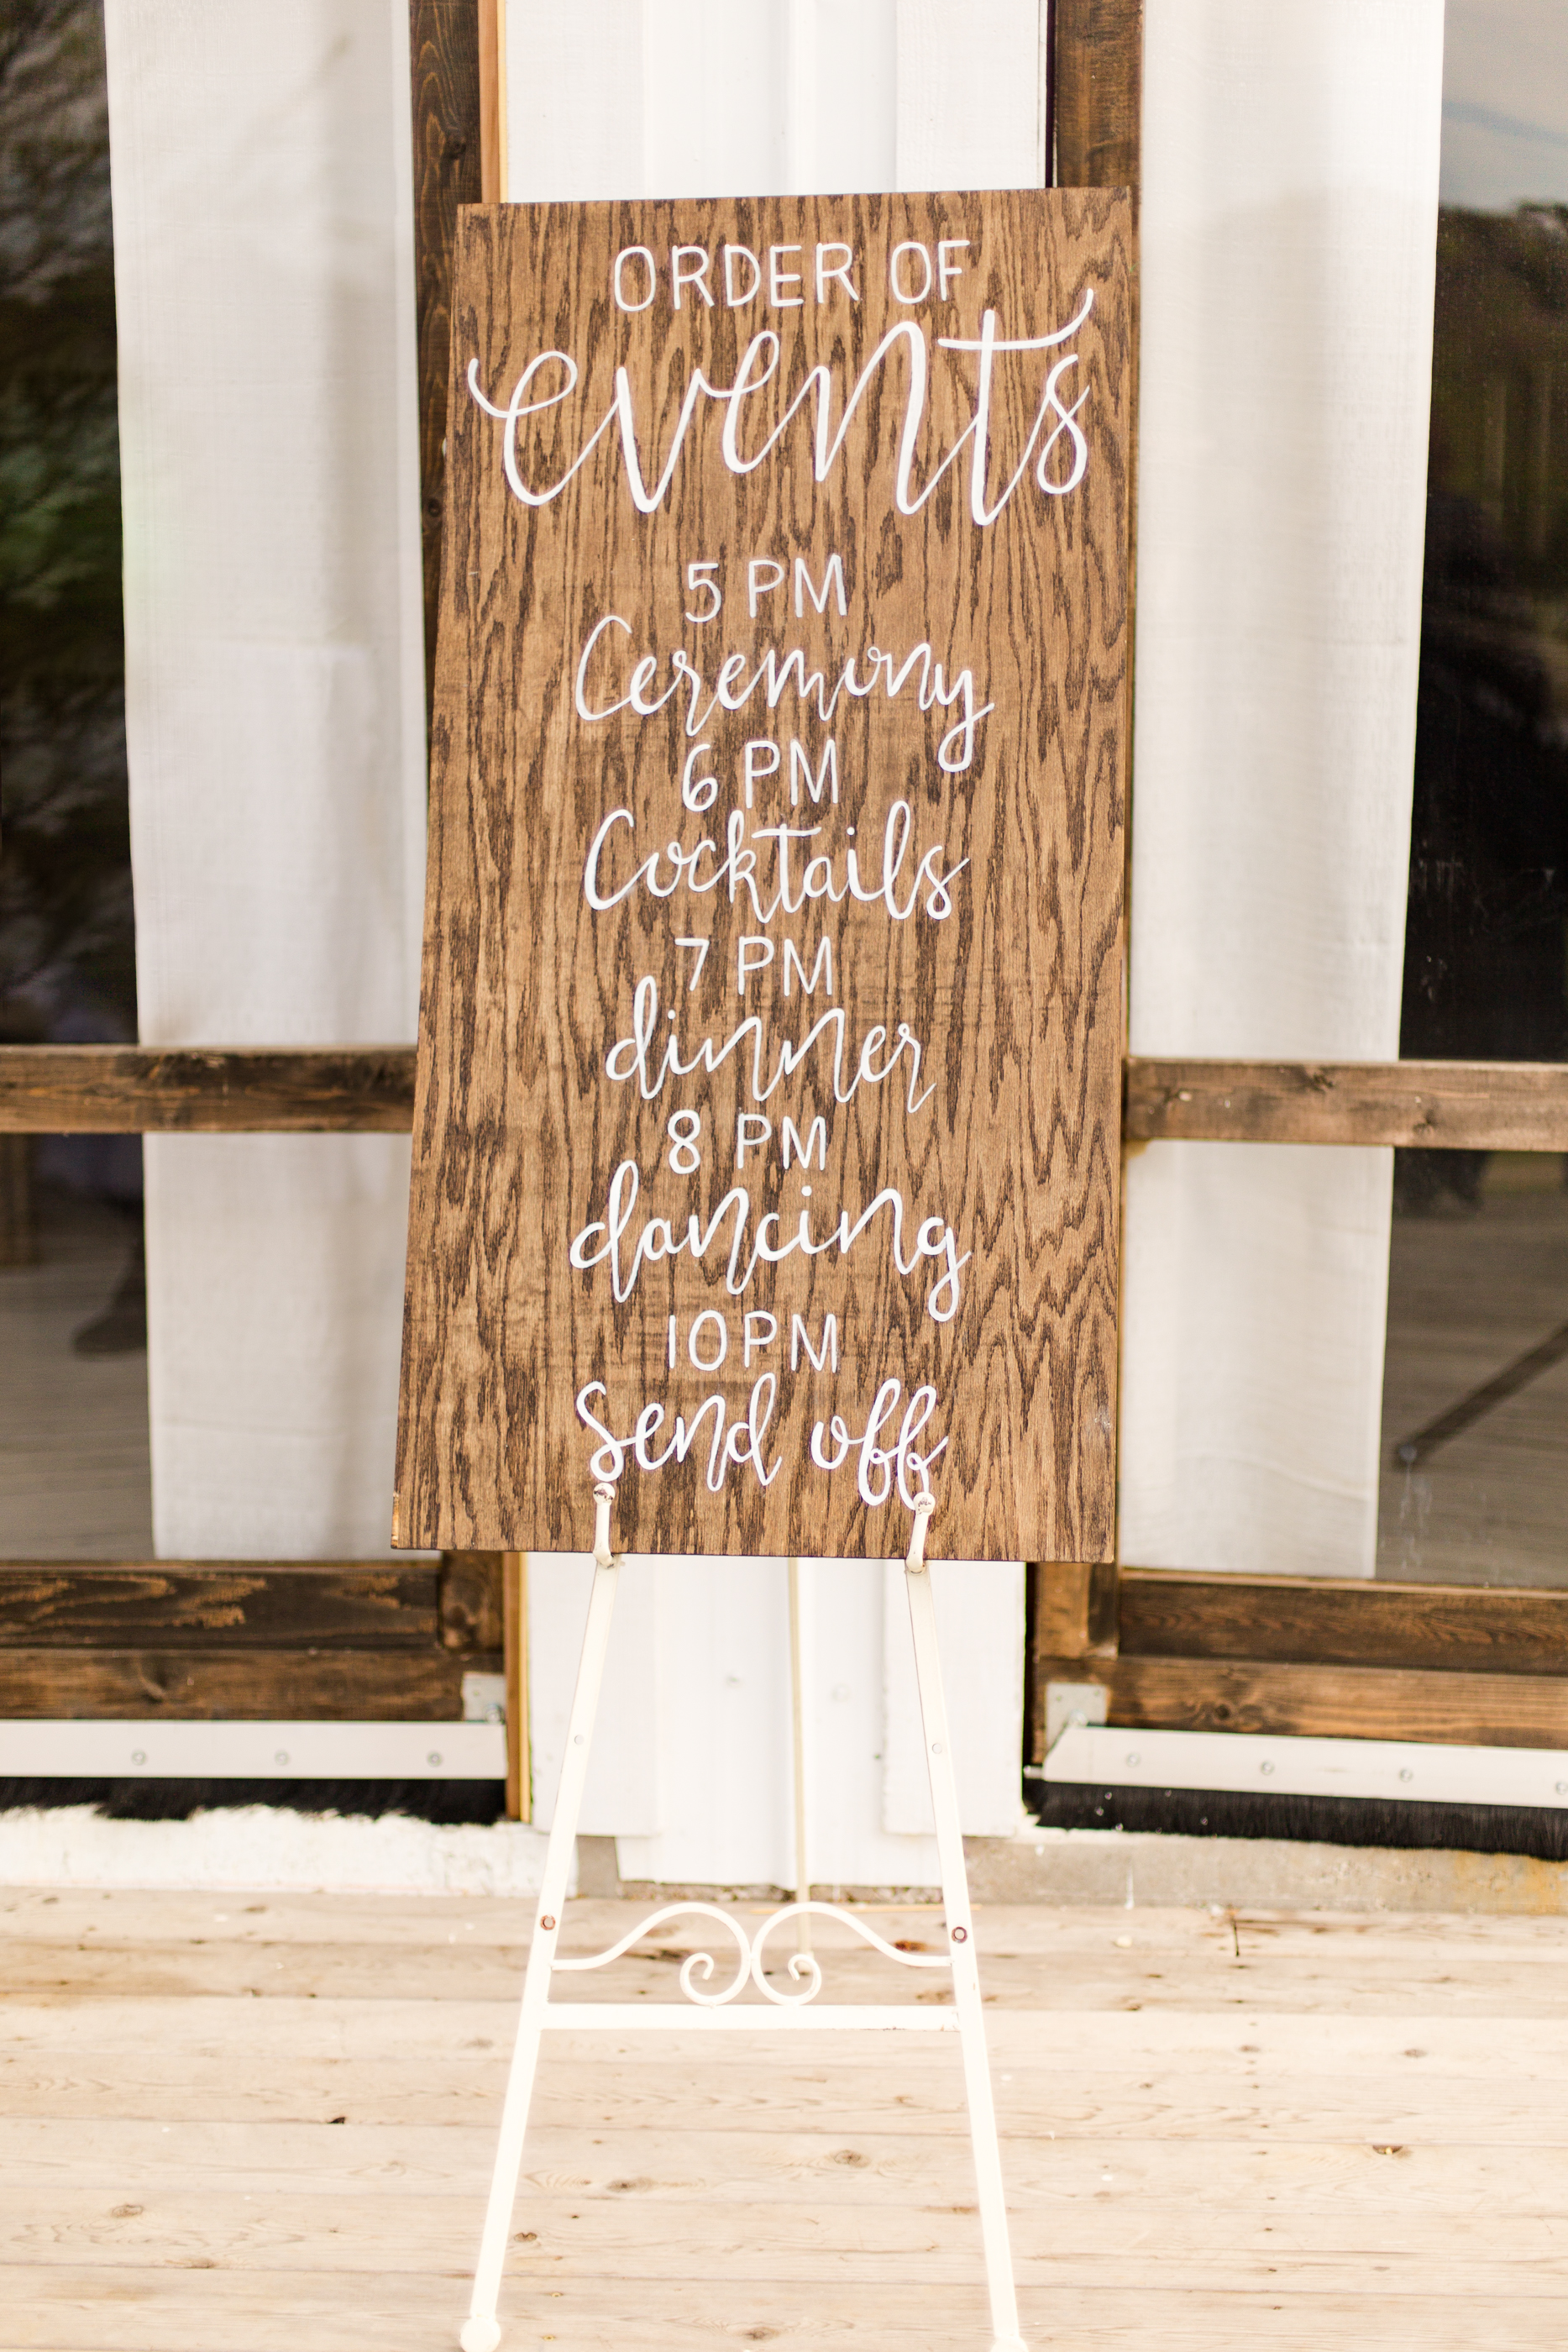 ORDER OF
events
5 PM
Ceremony
6 PM
Cocktails
7 PM
dinner
8 PM
dancing
10PM
Send off